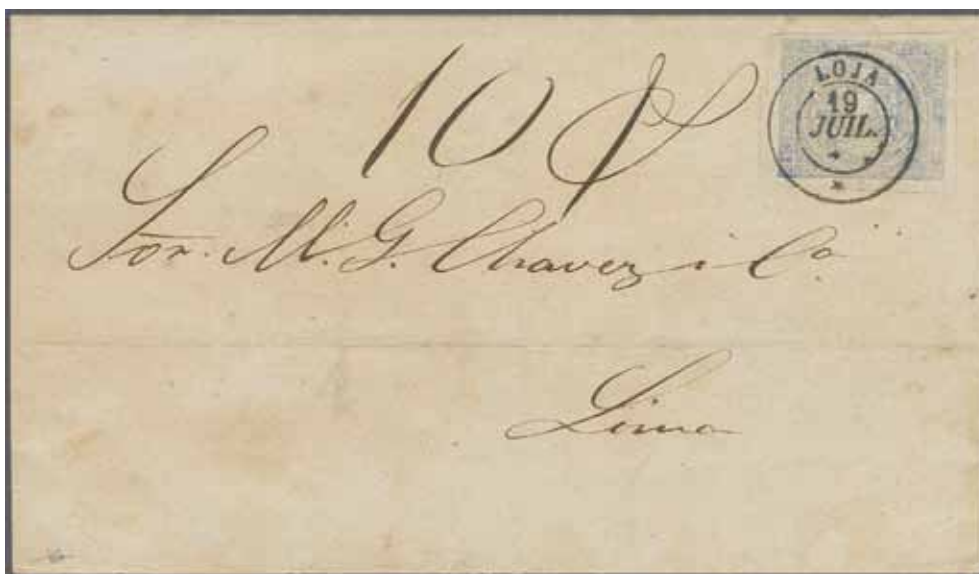 LOJA
19
JUIL.
10
Sor. M. G. Chavez i Ca
Lima